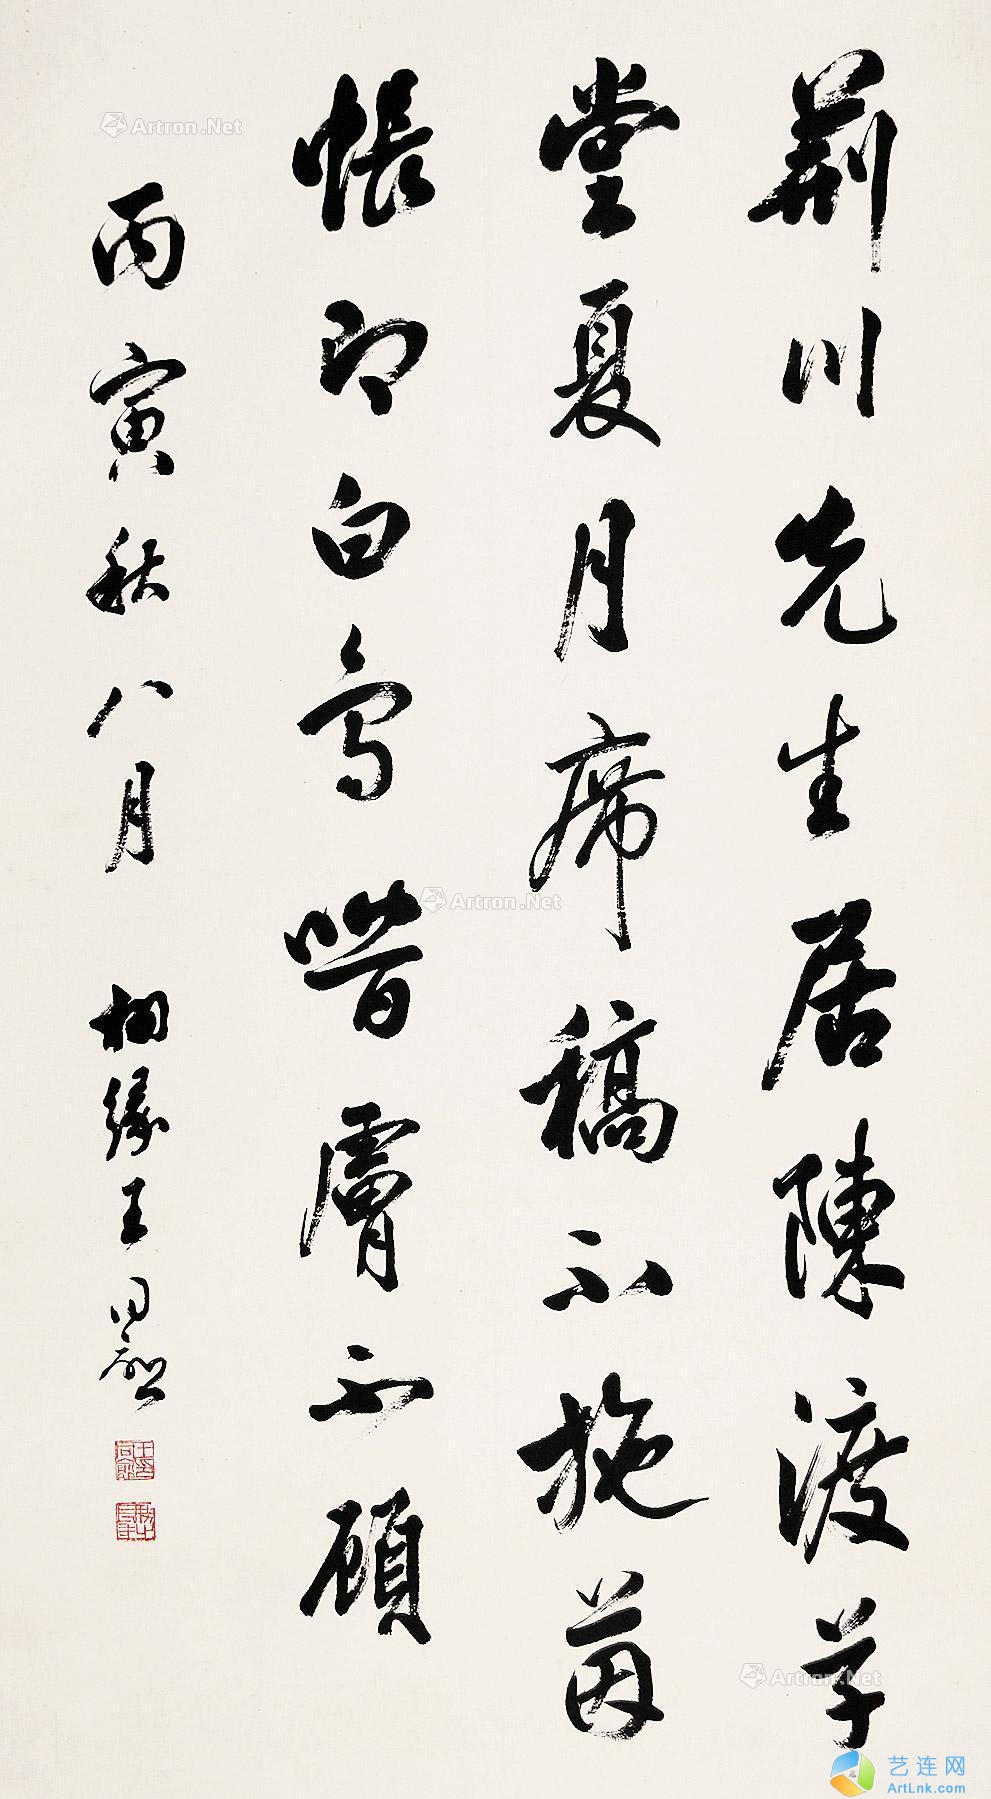 荆川先生居陳渡草
堂夏月席稿不施茵
帳即白鳥噆膚不顧
丙寅秋八月 栩緣王同愈
Artron.Net
Artron.Net
Artron.Net
艺连网
ArtLnk.com